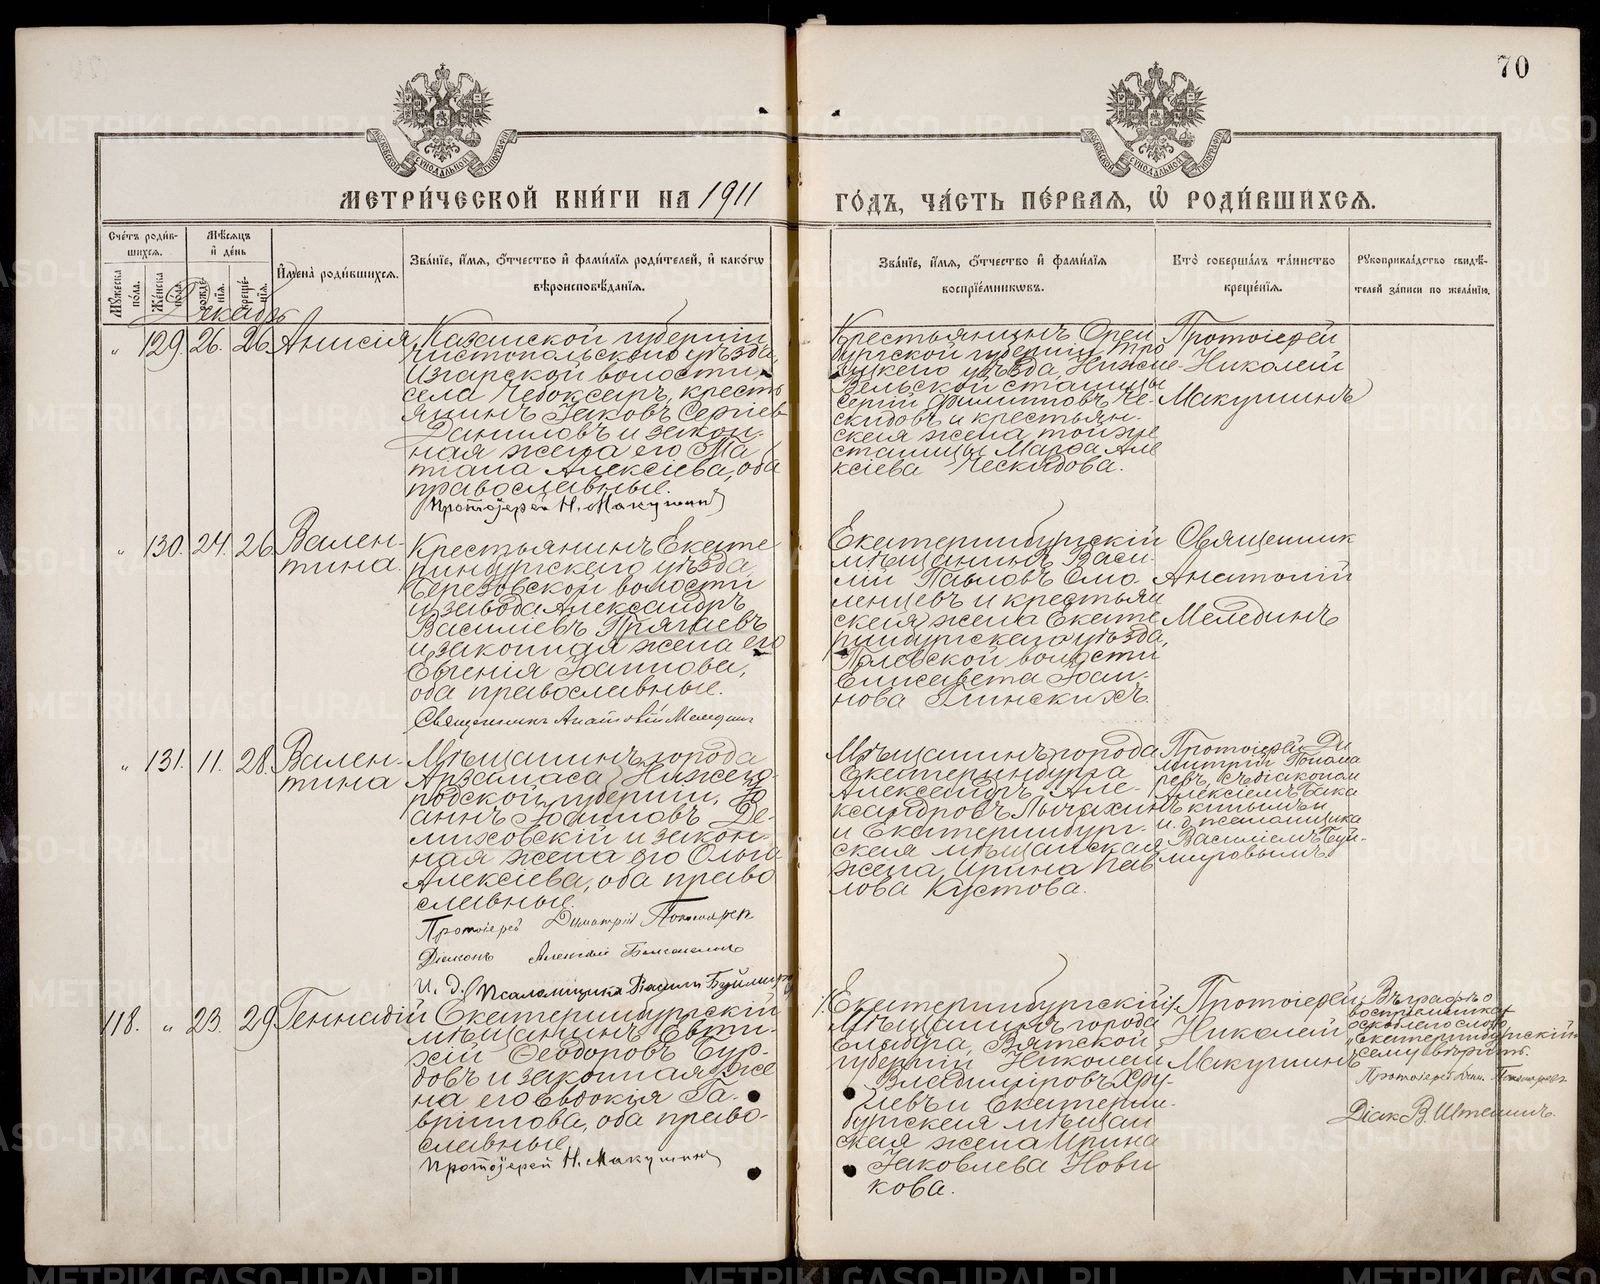 70
МЕТРИ́ЧЕСКОЙ КНИ́ГИ НА 1911
ГО́ДЪ, ЧА́СТЬ ПЕ́РВАѦ, Ѡ҆ РОДИ́ВШИХСѦ.
Сче́тъ роди́в-
шихсѧ.
Мѣ́сѧцъ
и҆ де́нь
И҆мена̀ роди́вшихсѧ.
Зва́нїе, и҆́мѧ, ѻ҆́тчество и҆ фами́лїѧ роди́телей, и҆ како́гѡ
вѣроисповѣ́данїѧ.
Му́жеска
по́ла.
Же́нска
по́ла.
рожде́-
нїѧ.
креще́-
нїѧ.
Зва́нїе, и҆́мѧ, ѻ҆́тчество и҆ фами́лїѧ
воспрїе́мникѡвъ.
Кто̀ соверша́лъ та́инство
креще́нїѧ.
Рꙋкоприкла́дство свидѣ́-
телей за́писи по жела́нїю.
Декабрь
" 129. 26. 26 Анисія
Казанской губерніи
Чистопольскаго уѣзда,
Изгарской волости,
села Чебоксаръ, кресть
янинъ Іаковъ Сергіевъ
Даниловъ и закон-
ная жена его Та
тіана Алексіева, оба
православные.
Протоіерей Н. Макушинъ
Крестьянинъ Орен
бургской губерніи Тро
ицкаго уѣзда, Нижне-
Увельской станицы
Сергій Филипповъ Че-
скидовъ и крестьян-
ская жена той же
станицы Марфа Але
ксіева Ческидова.
Протоіерей
Николай
Макушинъ
" 130. 24. 26 Вален-
тина.
Крестьянинъ Екате
ринбургскаго уѣзда
Березовской волости
и завода Александръ
Василіевъ Прягаевъ
и законная жена его
Евгенія Іоаннова,
оба православные.
Священникъ Анатолій Мелединъ
Екатеринбургскій
мѣщанинъ Васи-
лій Павловъ Смо-
ленцевъ и крестьян
ская жена Екате
ринбургскаго уѣзда,
волости
Елисавета Іоан-
нова Глинскихъ.
Священник
Анатолій
Мелединъ
" 131. 11. 28. Вален-
тина
Мѣщанинъ города
Арзамаса, Нижего-
родской губерніи, Іо
аннъ Іоанновъ Де-
миховскій и закон-
ная жена его Ольга
Алексіева, оба право
славные.
Протоіерей Димитрій Пономарев
Діаконъ Алексій
И. д. Псаломщика Василій
Мѣщанинъ города
Екатеринбурга
Александръ Але-
ксандровъ Лычахинъ
и Екатеринбург-
ская мѣщанская
жена, Ирина Пав
лова Кустова.
Протоіерей Ди
митрій Понома
ревъ, съ діаконом
Алексіемъ
и
и. д. псаломщика
Василіемъ
118. " 23. 29 Геннадій
Екатеринбургскій
мѣщанинъ Евти-
хій Ѳеодоровъ Бур-
довъ и законная же
на его Евдокія Га-
вріилова, оба право-
славные.
Протоіерей Н. Макушинъ
1. Екатеринбургскій
мѣщанинъ города
Елабуга, Вятской
губерніи, Николай
Владиміровъ Хру-
левъ и Екатерин-
бургская мѣщан
ская жена Ирина
Іаковлева Нови
кова.
Протоіерей
Николай
Макушинъ
1. Въ графѣ о
воспріемникахъ
оскоблено слово
"Екатеринбургскій"
сему вѣрить.
Протоіерей Дим. Пономарев
Діак. В. Штенинъ.